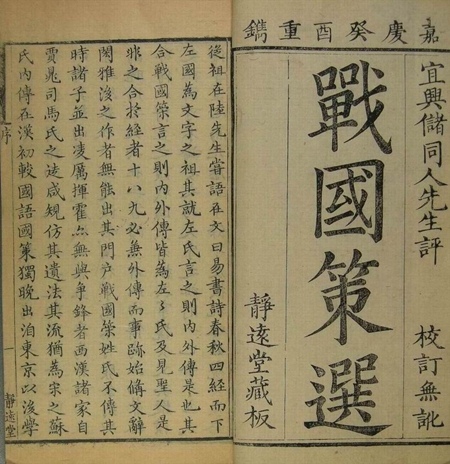 嘉慶癸酉重鐫
宜興儲同人先生評 校訂無訛
戰國策選
靜遠堂藏板
從祖在陸先生嘗語在文曰易書詩春秋四經而下
左國為文字之祖其就左氏言之則內外傳是也其
合戰國策言之則內外傳皆為左〻氏及見聖人是
非之合於經者十八九必無外傳而事跡始備文辭
閎雅後之作者無能出其門戶戰國策姓氏不傳其
時諸子並出凌厲揮霍亦無與爭鋒者西漢諸家自
賈鼂司馬氏之逮咸規仿其遺法其流猶為宋之蘇
氏內傳在漢初較國語國策獨晚出洎東京以後學
序
一
靜遠堂